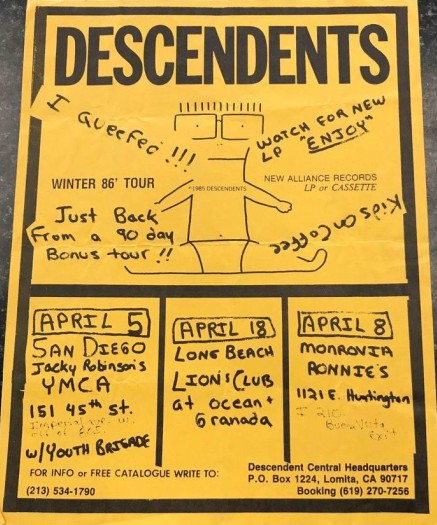 DESCENDENTS
I QUEEFED !!!
WATCH FOR NEW
LP "ENJOY"
WINTER 86' TOUR
©1985 DESCENDENTS
NEW ALLIANCE RECORDS
LP or CASSETTE
Just Back
From a 90 day
Bonus tour !!
Kids on Coffee
APRIL 5
SAN DIEGO
Jacky Robinson's
YMCA
151 45th St.
Imperial ave
off of
w/YOUTH BRIGADE
APRIL 18
LONG BEACH
LION'S CLUB
at ocean +
Granada
APRIL 8
MONROVIA
RONNIE'S
1121 E. Huntington
I 210
Buena Vista
exit
FOR INFO or FREE CATALOGUE WRITE TO:
(213) 534-1790
Descendent Central Headquarters
P.O. Box 1224, Lomita, CA 90717
Booking (619) 270-7256